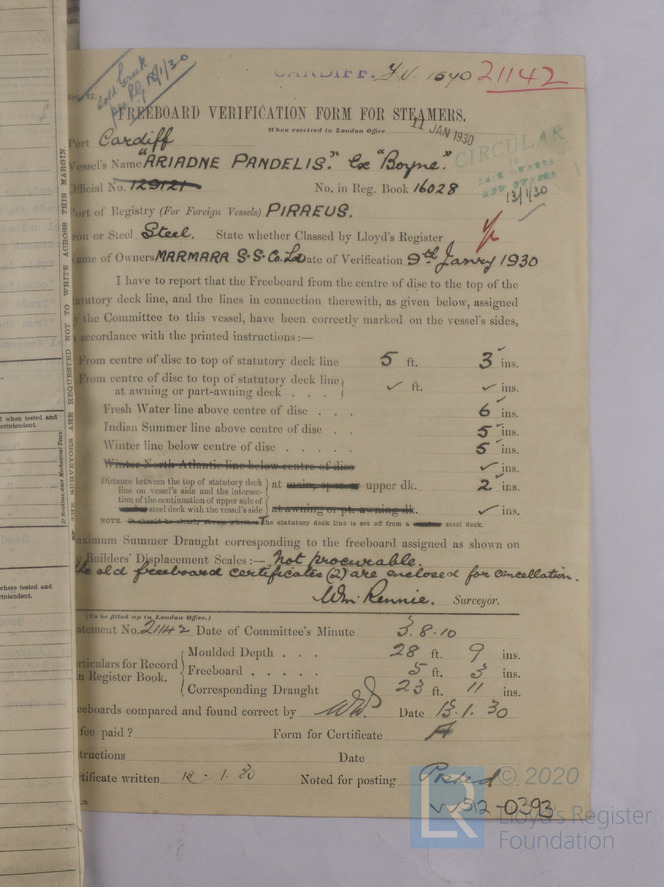 Sold Greek
CARDIFF. F.V. 1540 21142
FREEBOARD VERIFICATION FORM FOR STEAMERS.
When received in London Office 11 JAN 1930
CIRCULAR
13/1/30
Port Cardiff
Vessel's Name "ARIADNE PANDELIS." Ex "Boyne."
Official No. 129121 No. in Reg. Book 16028
Port of Registry (For Foreign Vessels) PIRAEUS.
Iron or Steel Steel. State whether Classed by Lloyd's Register
Name of Owners MARMARA S.S. Co. Ld Date of Verification 9th Janry 1930
I have to report that the Freeboard from the centre of disc to the top of the
statutory deck line, and the lines in connection therewith, as given below, assigned
by the Committee to this vessel, have been correctly marked on the vessel's sides,
in accordance with the printed instructions :—
From centre of disc to top of statutory deck line 5 ft. 3 ins.
From centre of disc to top of statutory deck line
at awning or part-awning deck . . . ✓ ft. ✓ ins.
Fresh Water line above centre of disc . . . 6 ins.
Indian Summer line above centre of disc . . 5 ins.
Winter line below centre of disc . . . . . 5 ins.
Winter North Atlantic line below centre of disc ✓ ins.
Distance between the top of statutory deck
line on vessel's side and the intersec-
tion of the continuation of upper side of
steel deck with the vessel's side
at main, spar, upper dk. 2 ins.
at awning or pt. awning dk. ✓ ins.
NOTE. It should be clearly The statutory deck line is set off from a steel deck.
Maximum Summer Draught corresponding to the freeboard assigned as shown on
Builders' Displacement Scales :— Not procurable.
The old freeboard certificates (2) are enclosed for cancellation.
Wm. Rennie. Surveyor.
(To be filled up in London Office.)
Statement No. 21142 Date of Committee's Minute 3.8.10
Particulars for Record
in Register Book.
Moulded Depth . . . 28 ft. 9 ins.
Freeboard . . . . . 5 ft. 3 ins.
Corresponding Draught 23 ft. 11 ins.
Freeboards compared and found correct by Date 13.1.30
fee paid ? Form for Certificate
Instructions Date
Certificate written 12.1.30 Noted for posting Posted
W512-0393
THE SURVEYORS ARE REQUESTED NOT TO WRITE ACROSS THIS MARGIN
when tested and
Superintendent.
where tested and
Superintendent.
LR © 2020
Lloyd's Register
Foundation